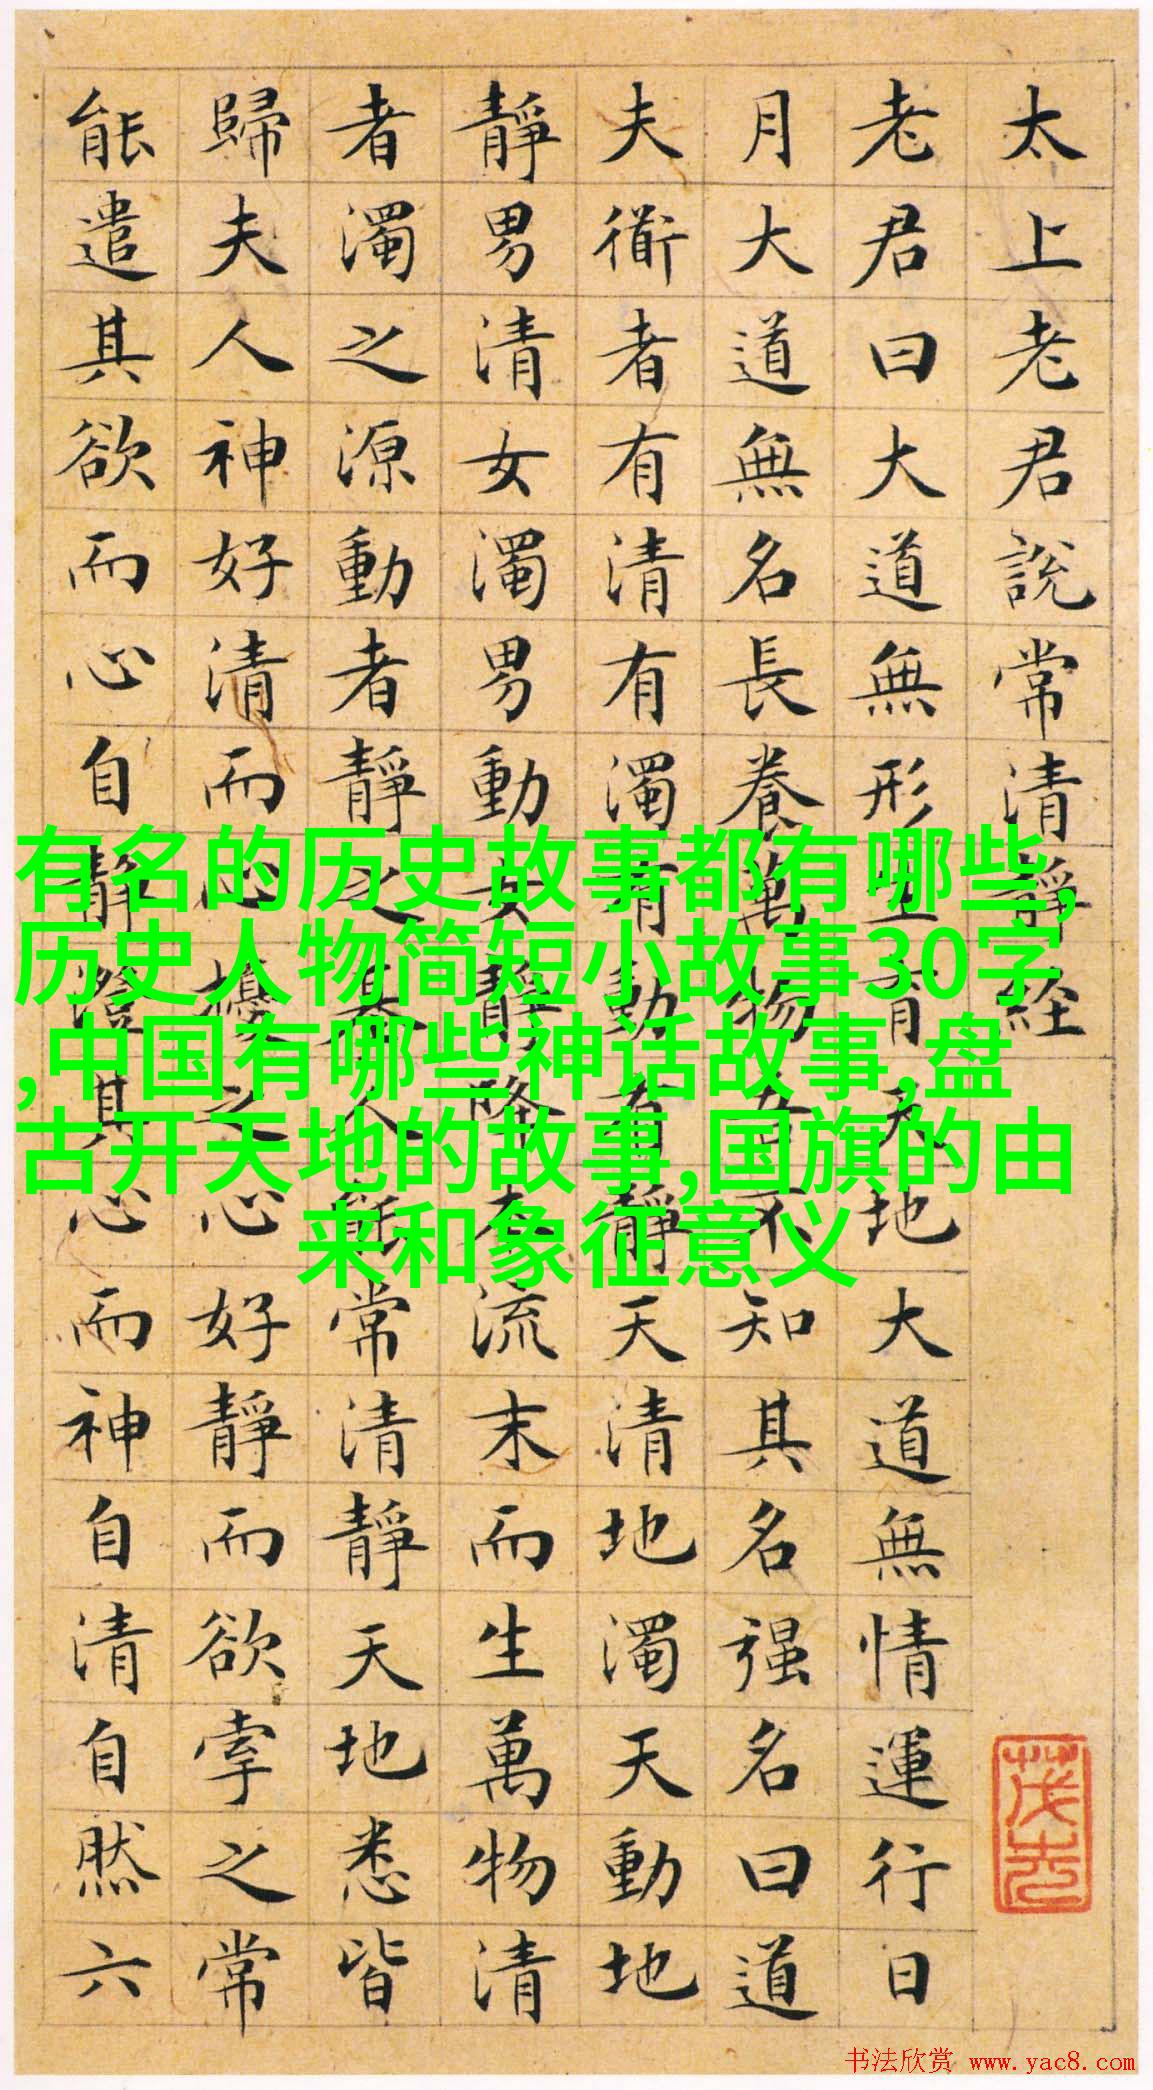 太上老君說常清靜経
老君曰大道無形生育天地大道無情運行日
月大道無名長養萬物吾不知其名强名曰道
夫衜者有清有濁有動有靜天清地濁天動地
靜男清女濁男動女靜降本流末而生萬物清
者濁之源動者靜之基人能常清靜天地悉皆
歸夫人神好清而心擾之心好靜而欲牽之常
能遣其欲而心自靜澄其心而神自清自然六
有名的历史故事都有哪些,
历史人物简短小故事30字
,中国有哪些神话故事,盘
古开天地的故事,国旗的由
来和象征意义
书法欣赏 www.yac8.com